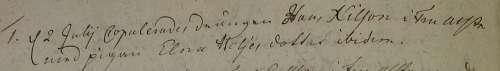 1. d 2 Julij Copulerades drängen Hans Nilson i
med pigan Elna Nels dotter ibidem.